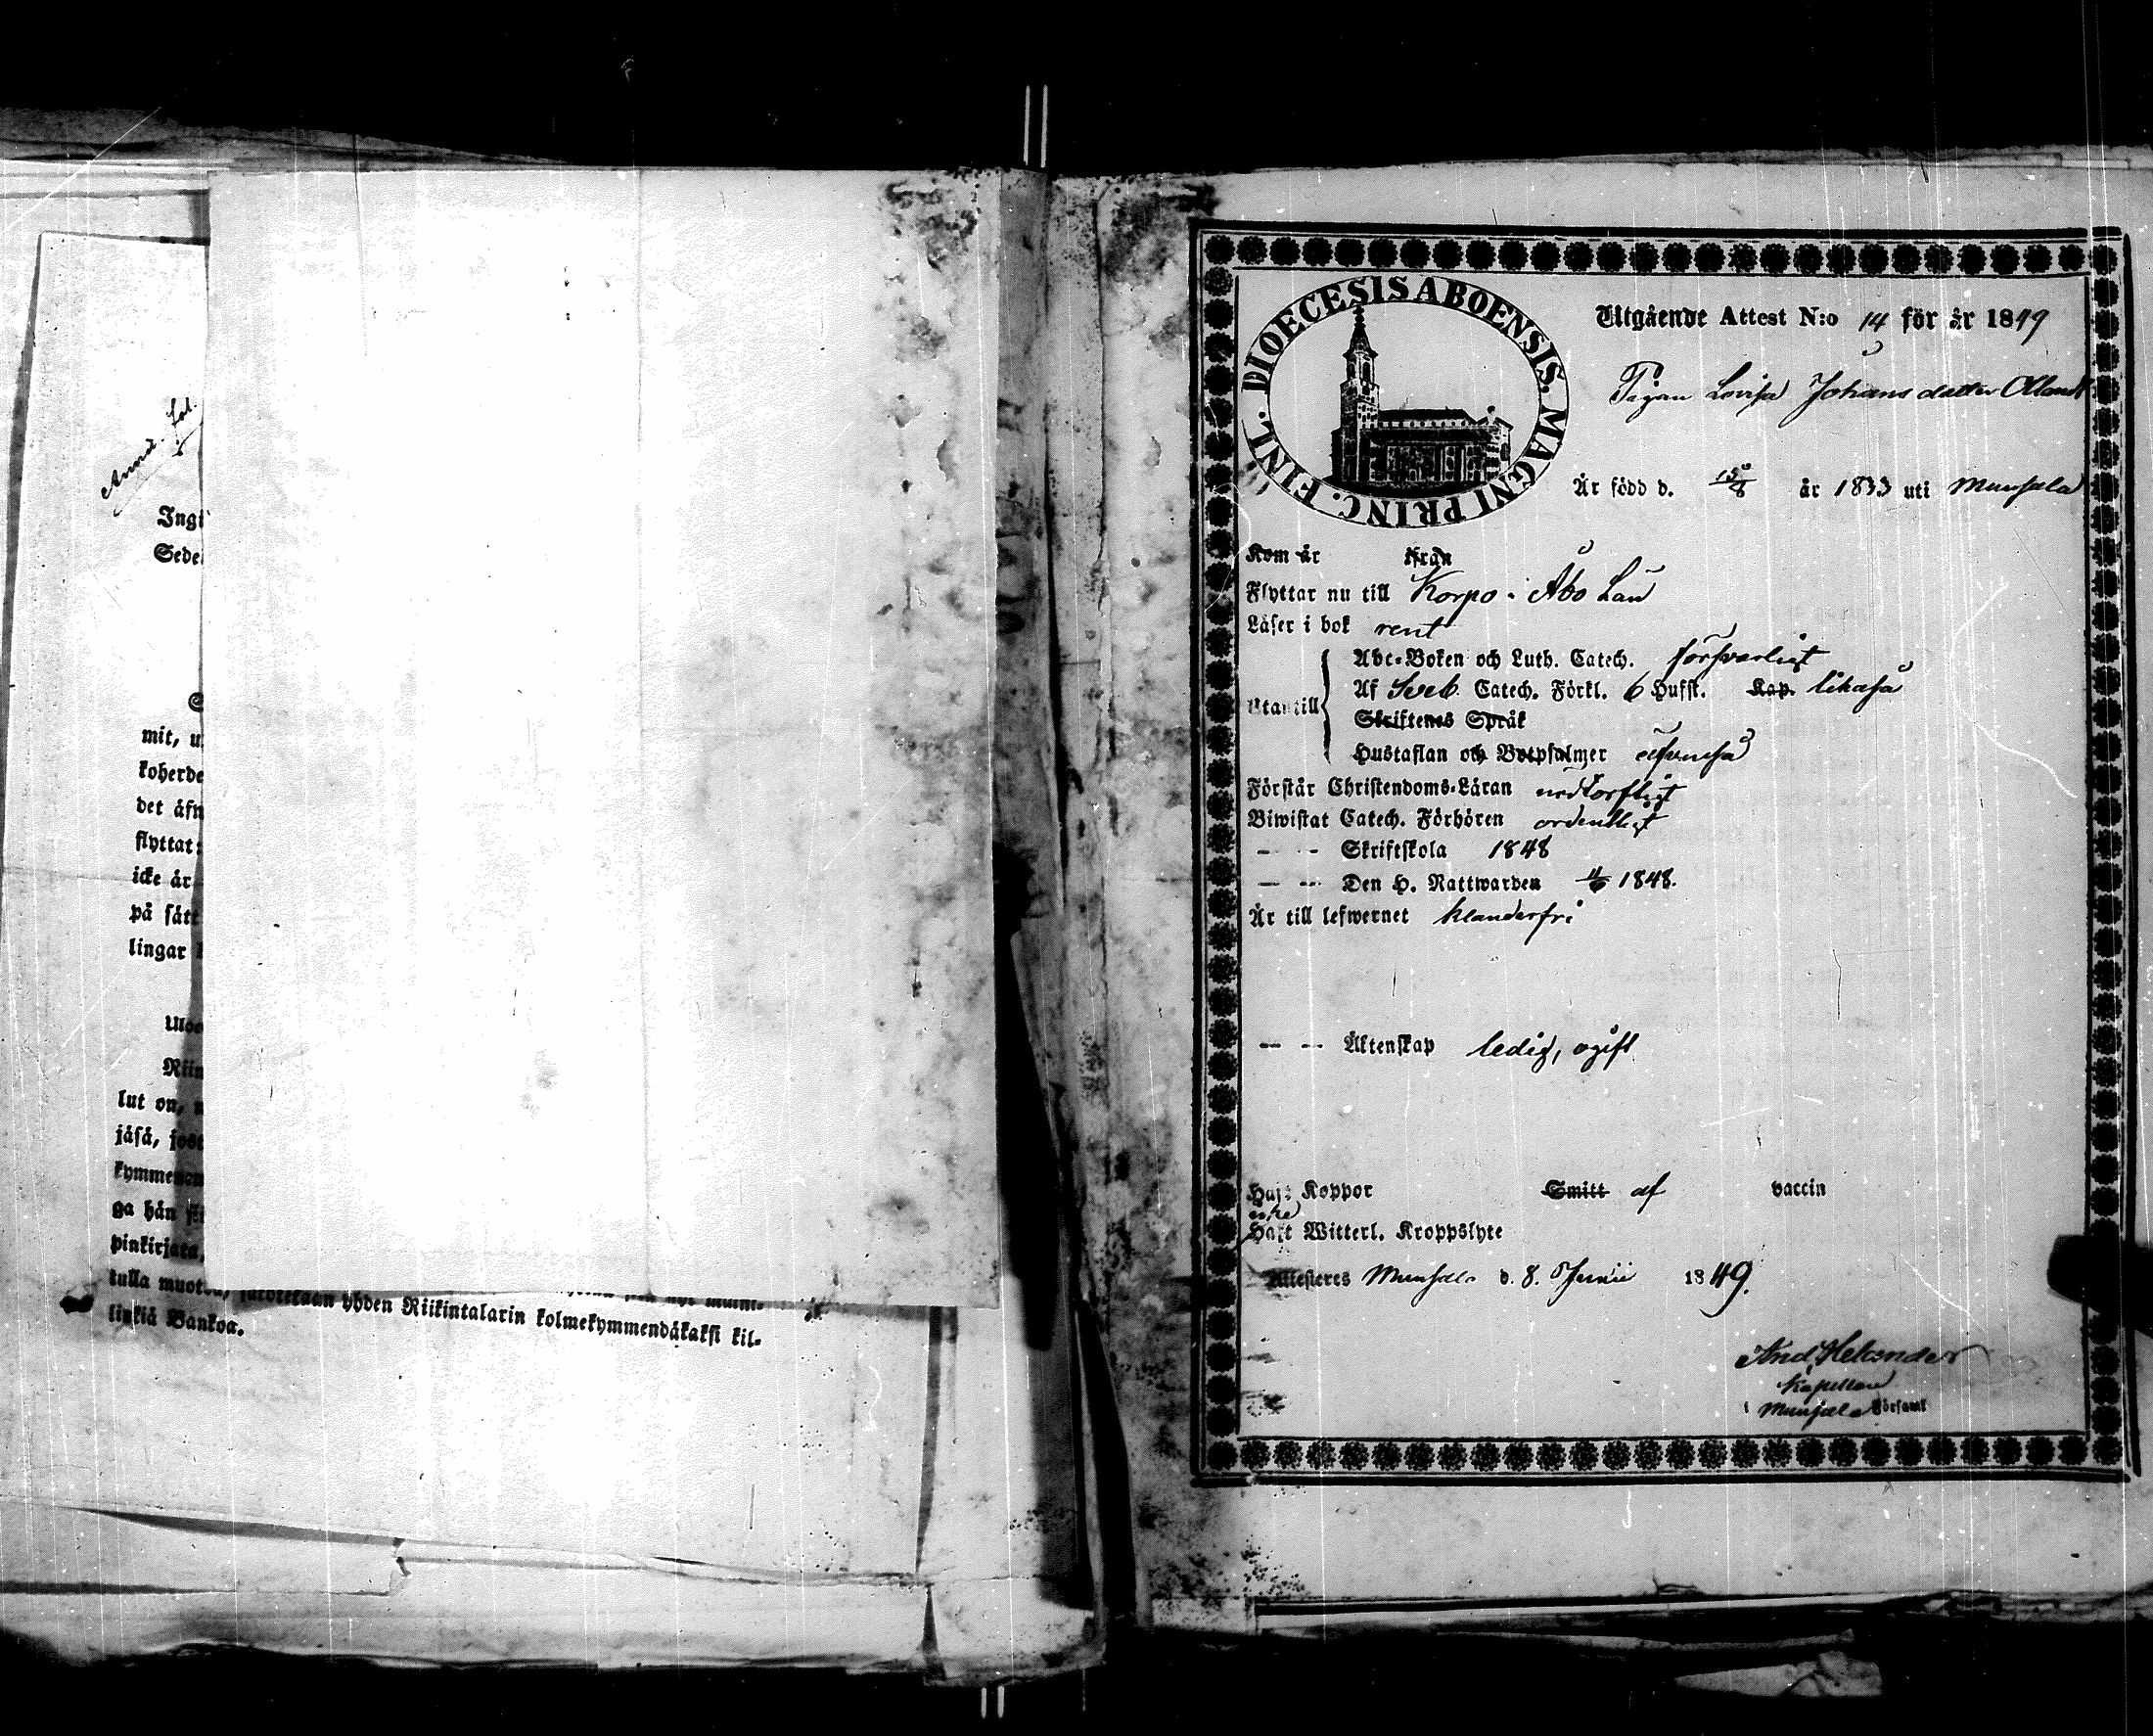 Ingi
Sede
mit, u
koherde
det åfn
flyttat
icke är
på sätt
lingar
Uloo
Riin
lut on,
jåså, jost
kymmenen
ga hån
pinkirjata,
kulla muoto
yhden Riikintalarin kolmekymmendäkaksi kil-
linkiä Bankoa.
DIOECESIS ABOENSIS. MAGNI PRINC. FINL.
Utgående Attest N:o 14 för år 1849
Pigan Lovisa Johansdotter
Är född d. 15/8 år 1833 uti Munsala
Kom år från
Flyttar nu till Korpo i Åbo Län
Läser i bok rent
Abc-Boken och Luth. Catech. försvarligt
Utantill Af Sveb. Catech. Förkl. 6 Hufst. Kap. likaså
Skriftenes Språk
Hustaflan och Botpsalmer äfvenså
Förstår Christendoms-Läran nödtorftigt
Biwistat Catech. Förhören ordentligt
— — Skriftskola 1848
— — Den H. Nattwarden 1848.
Är till lefwernet klanderfri
— — Äktenskap ledig, ogift
Haft Koppor Smitt af vaccin
icke
Haft Witterl. Kroppslyte
Attesteres Munsala d. 8. Junii 1849.
And. Helander
Kapellan
i Munsala Församl